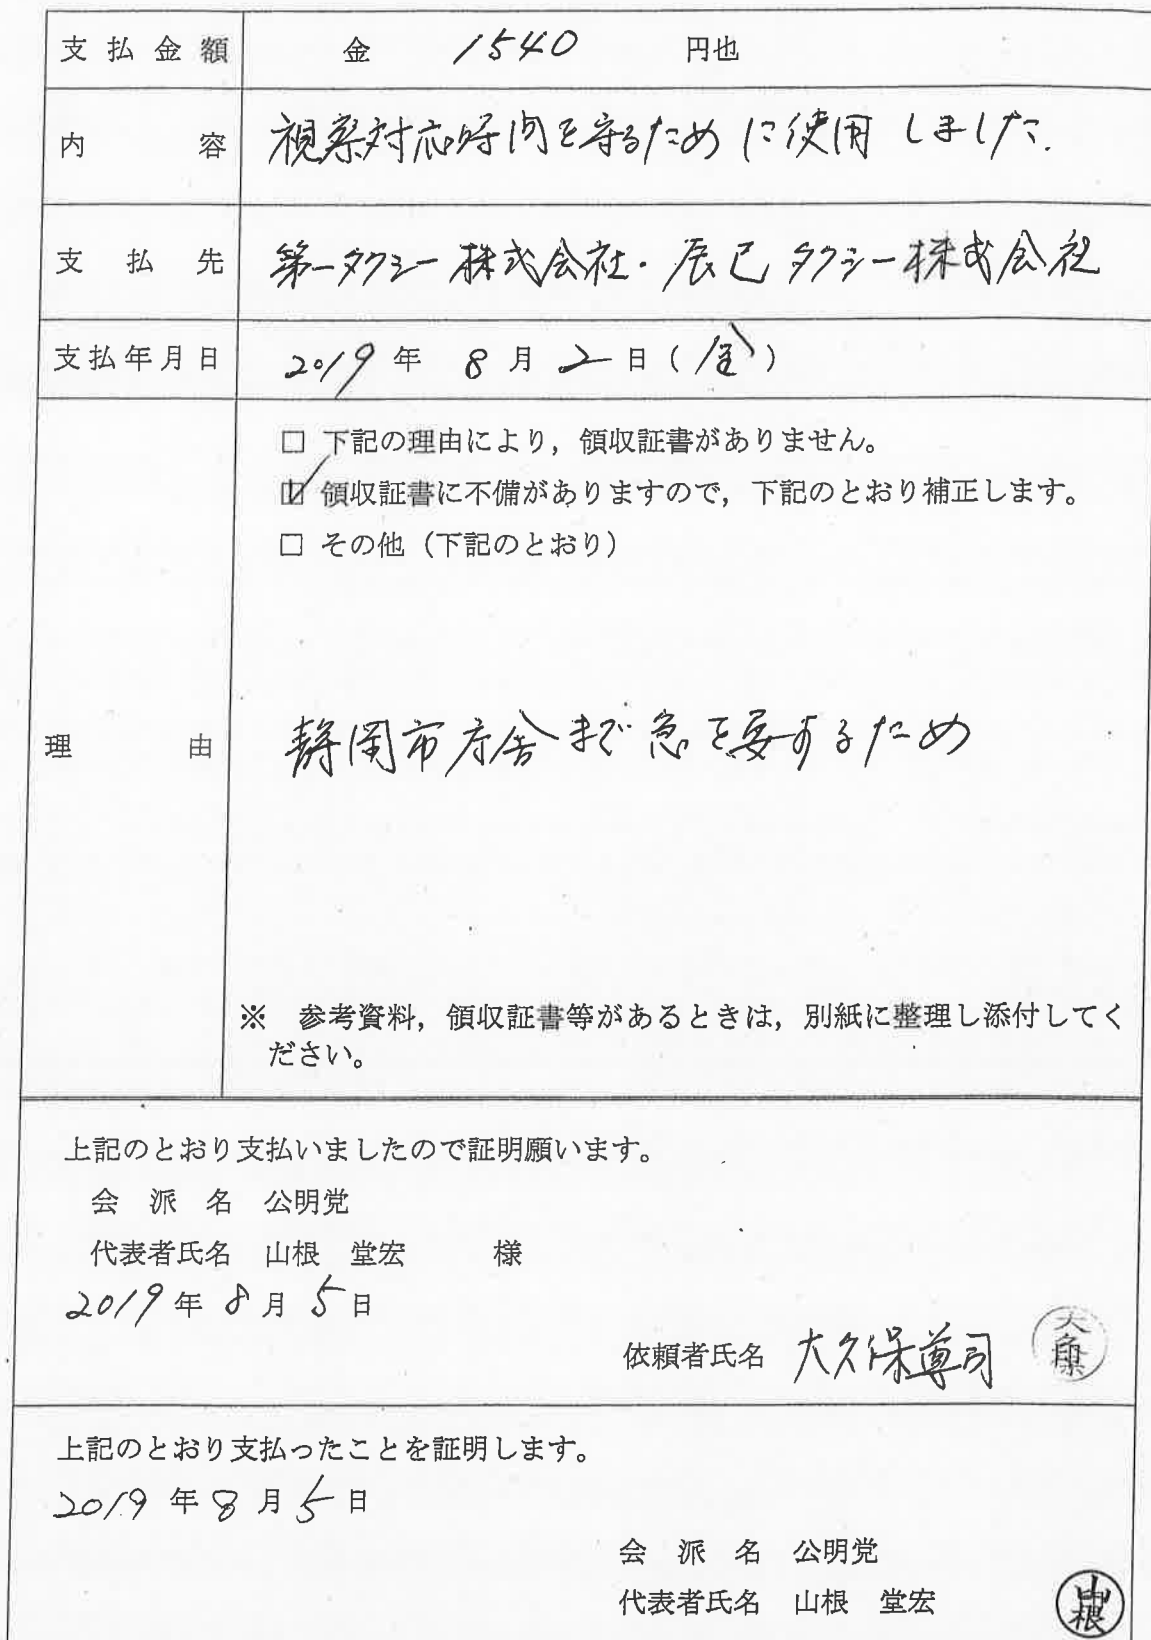 支払金額 金 1540 円也
内容 視察対応時間を守るために使用しました.
支払先 第一タクシー株式会社・辰巳タクシー株式会社
支払年月日 2019年 8月 2日(金)
□ 下記の理由により，領収証書がありません。
☑ 領収証書に不備がありますので，下記のとおり補正します。
□ その他（下記のとおり）
理由 静岡市庁舎まで急を要するため
※ 参考資料，領収証書等があるときは，別紙に整理し添付してく
ださい。
上記のとおり支払いましたので証明願います。
会派名 公明党
代表者氏名 山根 堂宏 様
2019年8月5日
依頼者氏名 大久保尊司
上記のとおり支払ったことを証明します。
2019年8月5日
会派名 公明党
代表者氏名 山根 堂宏 山根